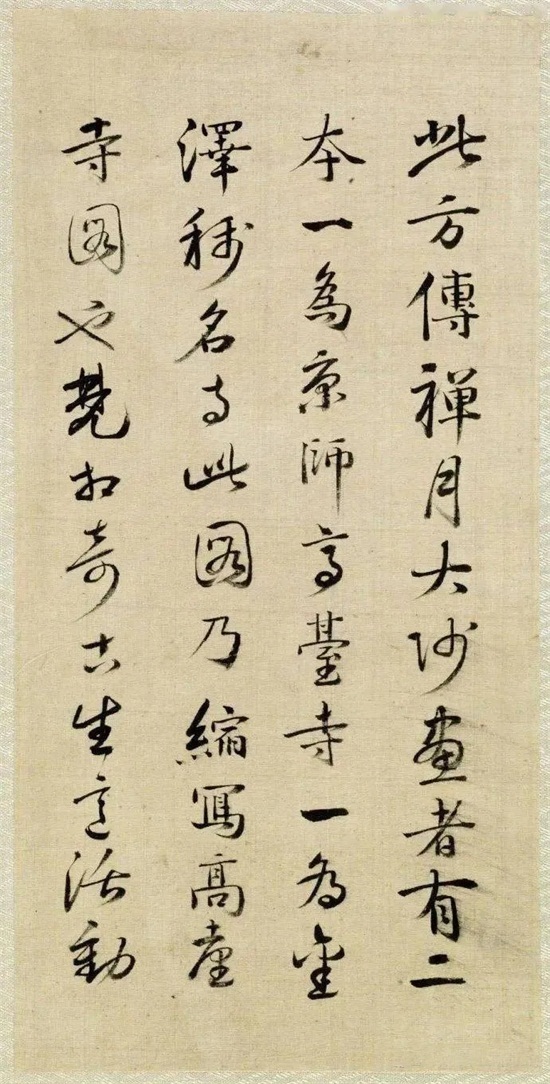 此方傳禪月大師畫者有二
本一為京師高臺寺一為金
澤稱名寺此圖乃縮寫高臺
寺圖也梵相奇古生意活動